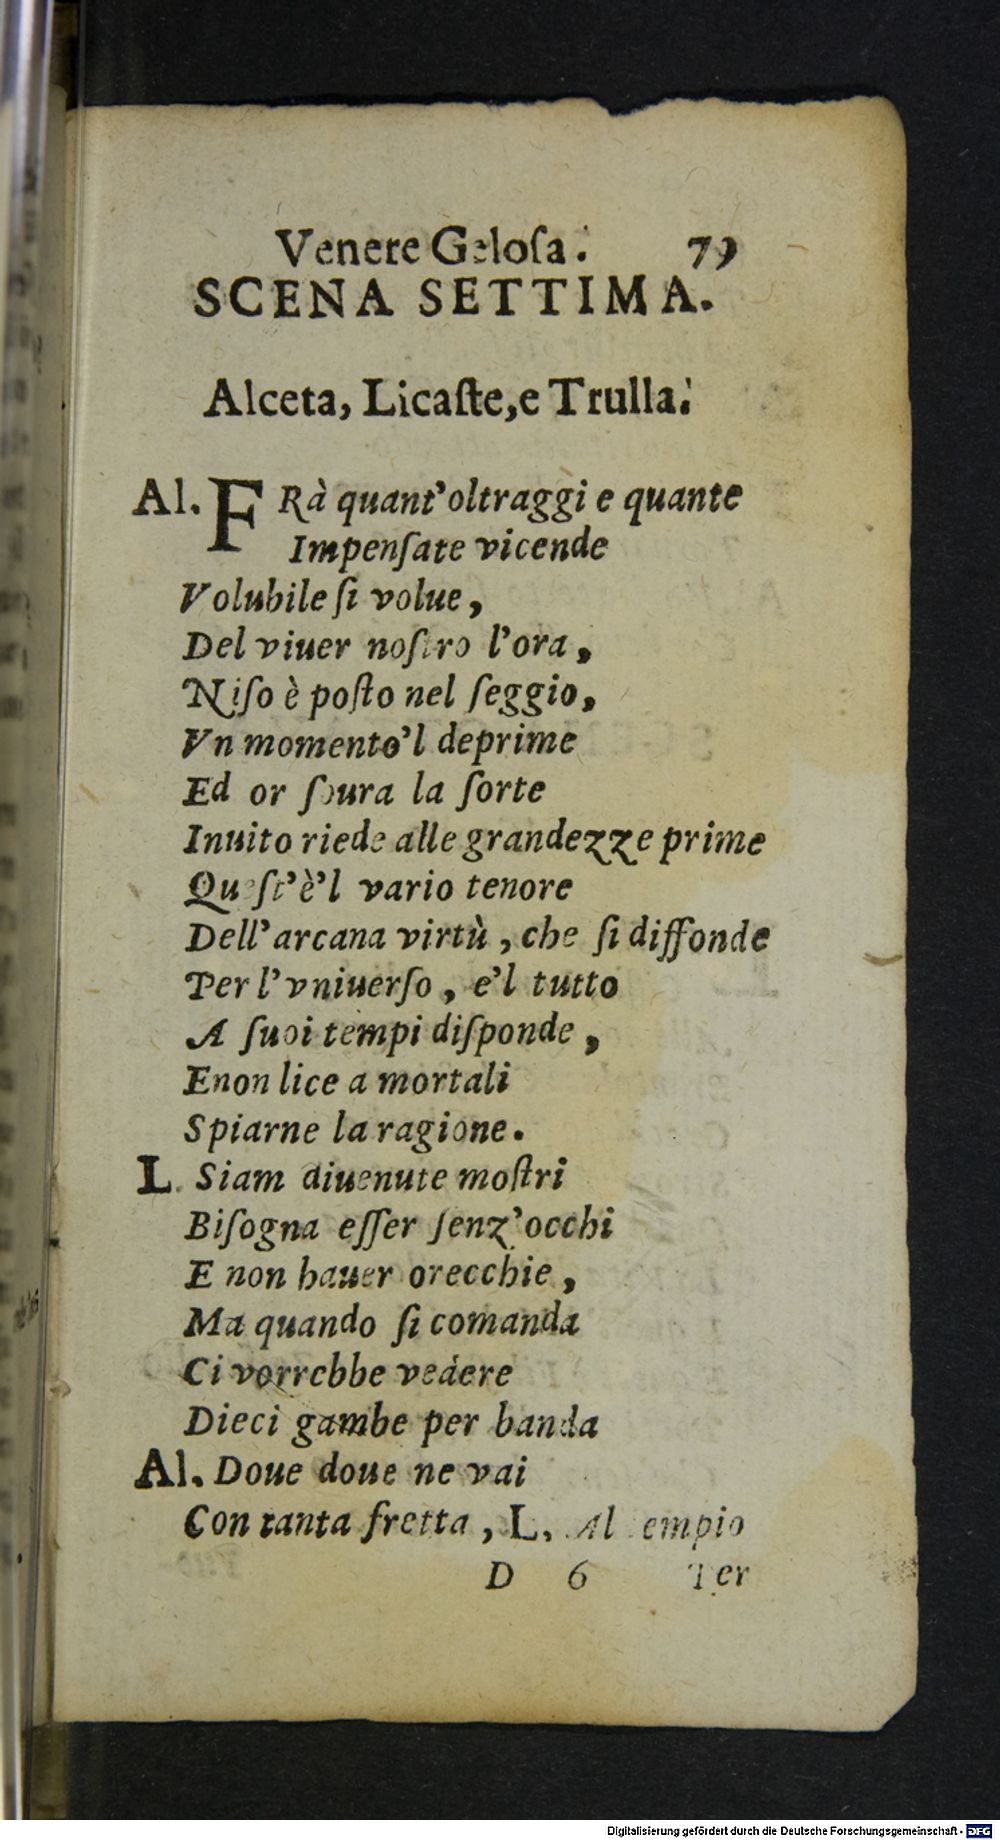 Venere Geloſa. 79
SCENA SETTIMA.
Alceta, Licaſte, e Trulla.
Al. FRà quant'oltraggi e quante
Impenſate vicende
Volubile ſi volue,
Del viuer noſtro l'ora,
Niſo è poſto nel ſeggio,
Vn momento'l deprime
Ed or ſoura la ſorte
Inuito riede alle grandezze prime
Queſt'è'l vario tenore
Dell'arcana virtù, che ſi diffonde
Per l'vniuerſo, e'l tutto
A ſuoi tempi diſponde,
Enon lice a mortali
Spiarne la ragione.
L. Siam diuenute moſtri
Biſogna eſſer ſenz'occhi
E non hauer orecchie,
Ma quando ſi comanda
Ci vorrebbe vedere
Dieci gambe per banda
Al. Doue doue ne vai
Con tanta fretta, L. Al tempio
D 6 Per
Digitalisierung gefördert durch die Deutsche Forschungsgemeinschaft - DFG